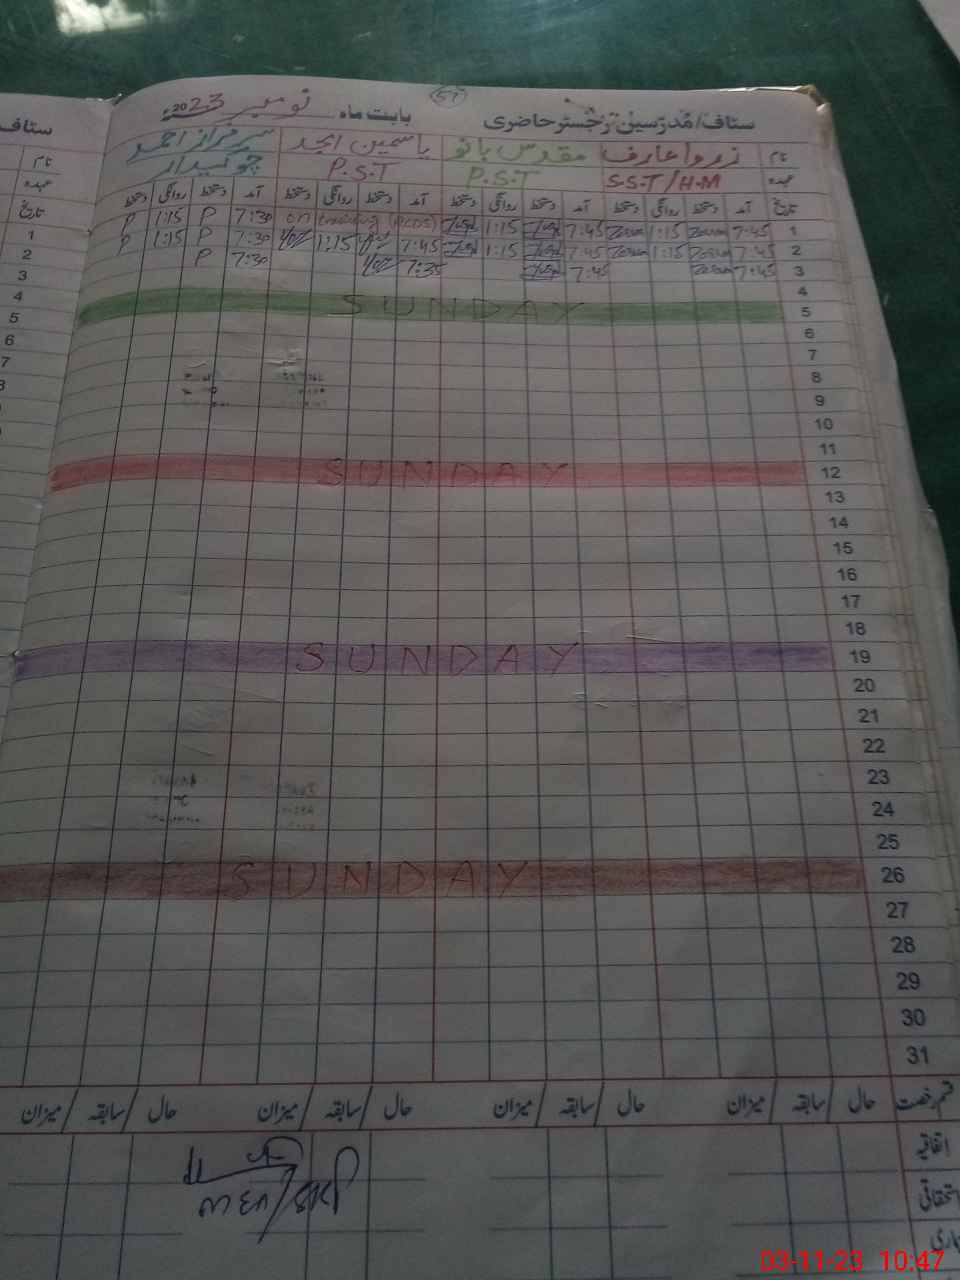 57
سٹاف/مدرسین رجسٹر حاضری بابت ماہ نومبر 2023ء
نام زرو اعارف مقدس بانو یاسمین امجد سرفراز احمد
عہدہ S.S.T/H.M P.S.T P.S.T چوکیدار
تاریخ آمد دستخط روانگی دستخط آمد دستخط روانگی دستخط آمد دستخط روانگی دستخط آمد دستخط روانگی دستخط
1 7:45 1:15 7:45 1:15 on training 7:30 P 1:15 P
2 7:45 1:15 7:45 1:15 7:45 1:15 7:30 P 1:15 P
3 7:45 7:45 7:35 7:30 P
4
5 SUNDAY
6
7
8
9
10
11
12 SUNDAY
13
14
15
16
17
18
19 SUNDAY
20
21
22
23
24
25
26 SUNDAY
27
28
29
30
31
قسم رخصت حال / سابقہ / میزان حال / سابقہ / میزان حال / سابقہ / میزان حال / سابقہ / میزان
اتفاقیہ
استحقاقی
سٹاف
نام
عہدہ
تاریخ
1
2
3
4
5
6
7
03-11-23 10:47